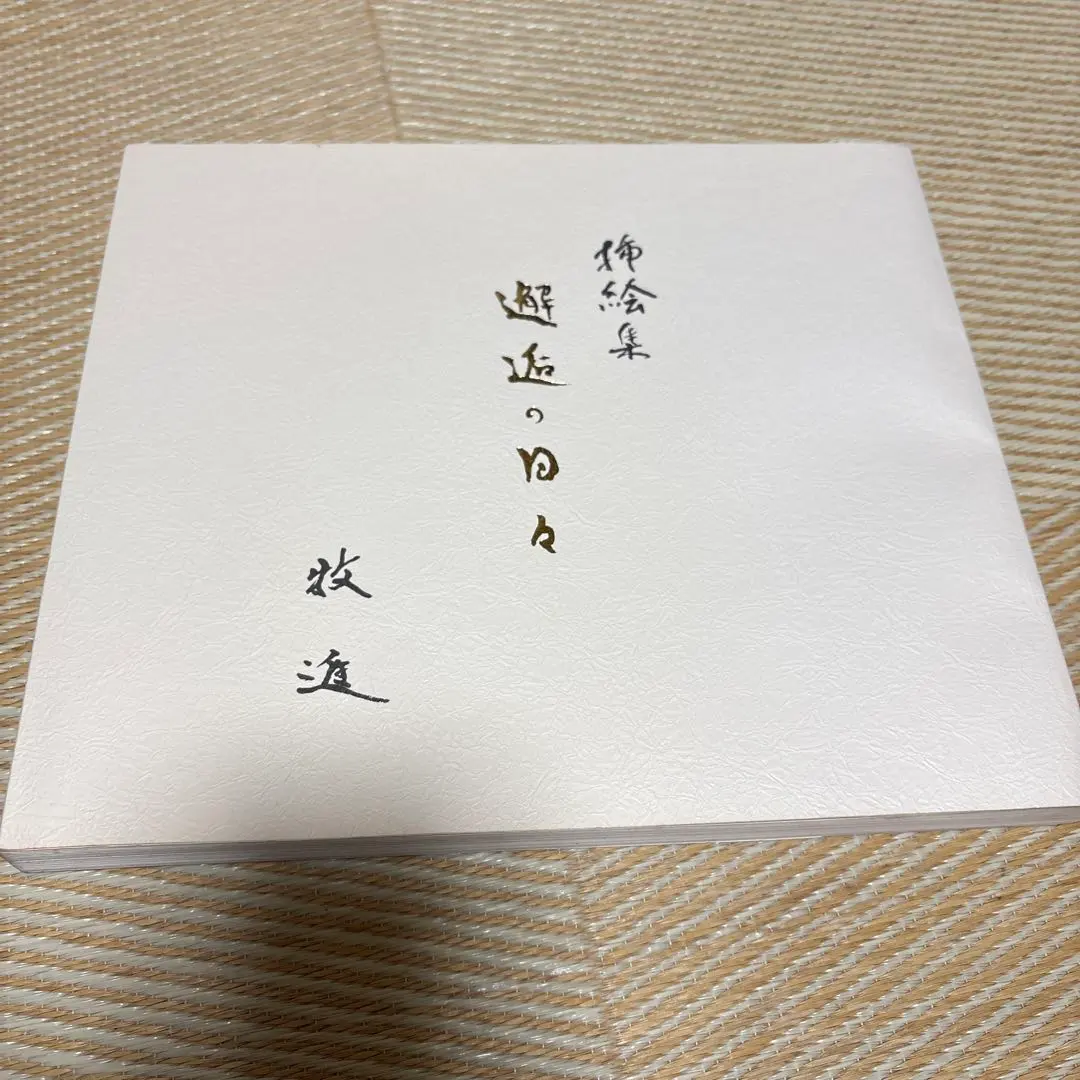 挿絵集
邂逅の日々
牧 進